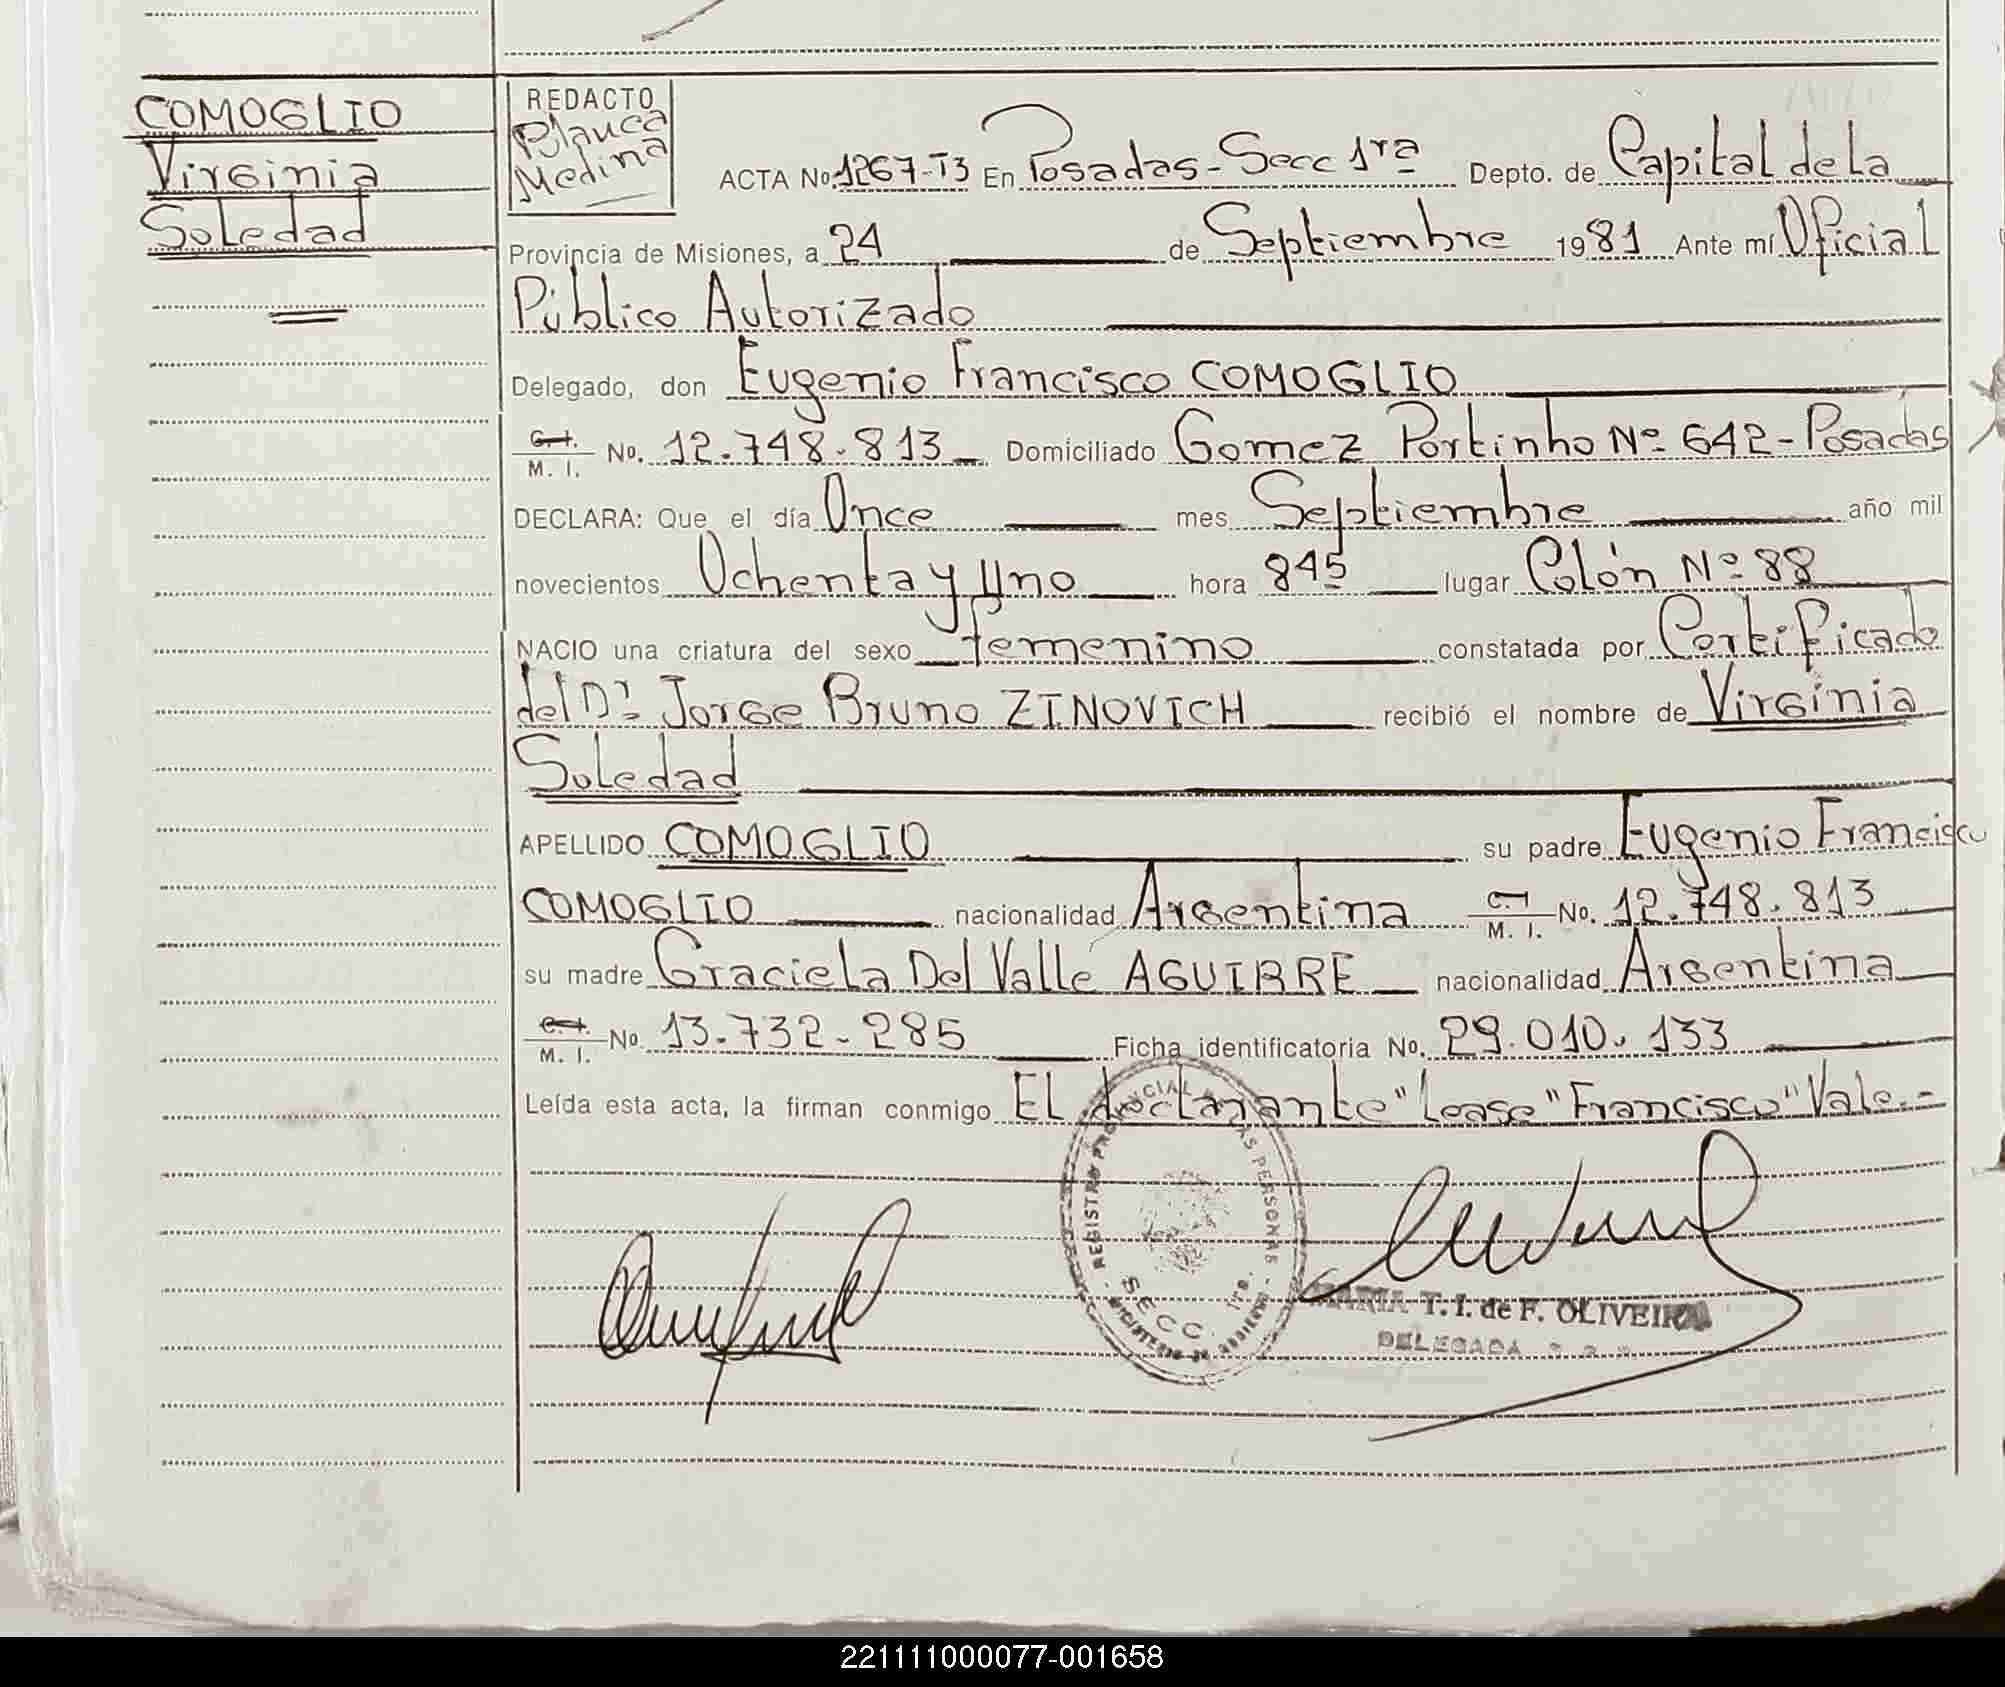 COMOGLIO
Virginia
Soledad
REDACTO
Blanca
Medina
ACTA No. 1267-T3 En Posadas-Secc 1ra Depto. de Capital de La
Provincia de Misiones, a 24 de Septiembre 1981 Ante mí Oficial
Público Autorizado
Delegado, don Eugenio Francisco COMOGLIO
C. I. M. I. No. 12.748.813 Domiciliado Gomez Portinho Nº 642-Posadas
DECLARA: Que el día Once mes Septiembre año mil
novecientos Ochenta y Uno hora 845 lugar Colón Nº 88
NACIO una criatura del sexo femenino constatada por Certificado
del Dr. Jorge Bruno ZINOVICH recibió el nombre de Virginia
Soledad
APELLIDO COMOGLIO su padre Eugenio Francisco
COMOGLIO nacionalidad Argentina C. I. M. I. No. 12.748.813
su madre Graciela Del Valle AGUIRRE nacionalidad Argentina
C. I. M. I. No. 13.732.285 Ficha identificatoria No. 29.010.133
Leída esta acta, la firman conmigo El declarante "Lease" Francisco" Vale.-
REGISTRO PROVINCIAL DE LAS PERSONAS
SECC. 1ra.
MARIA T. I. de F. OLIVEIRA
DELEGADA
221111000077-001658